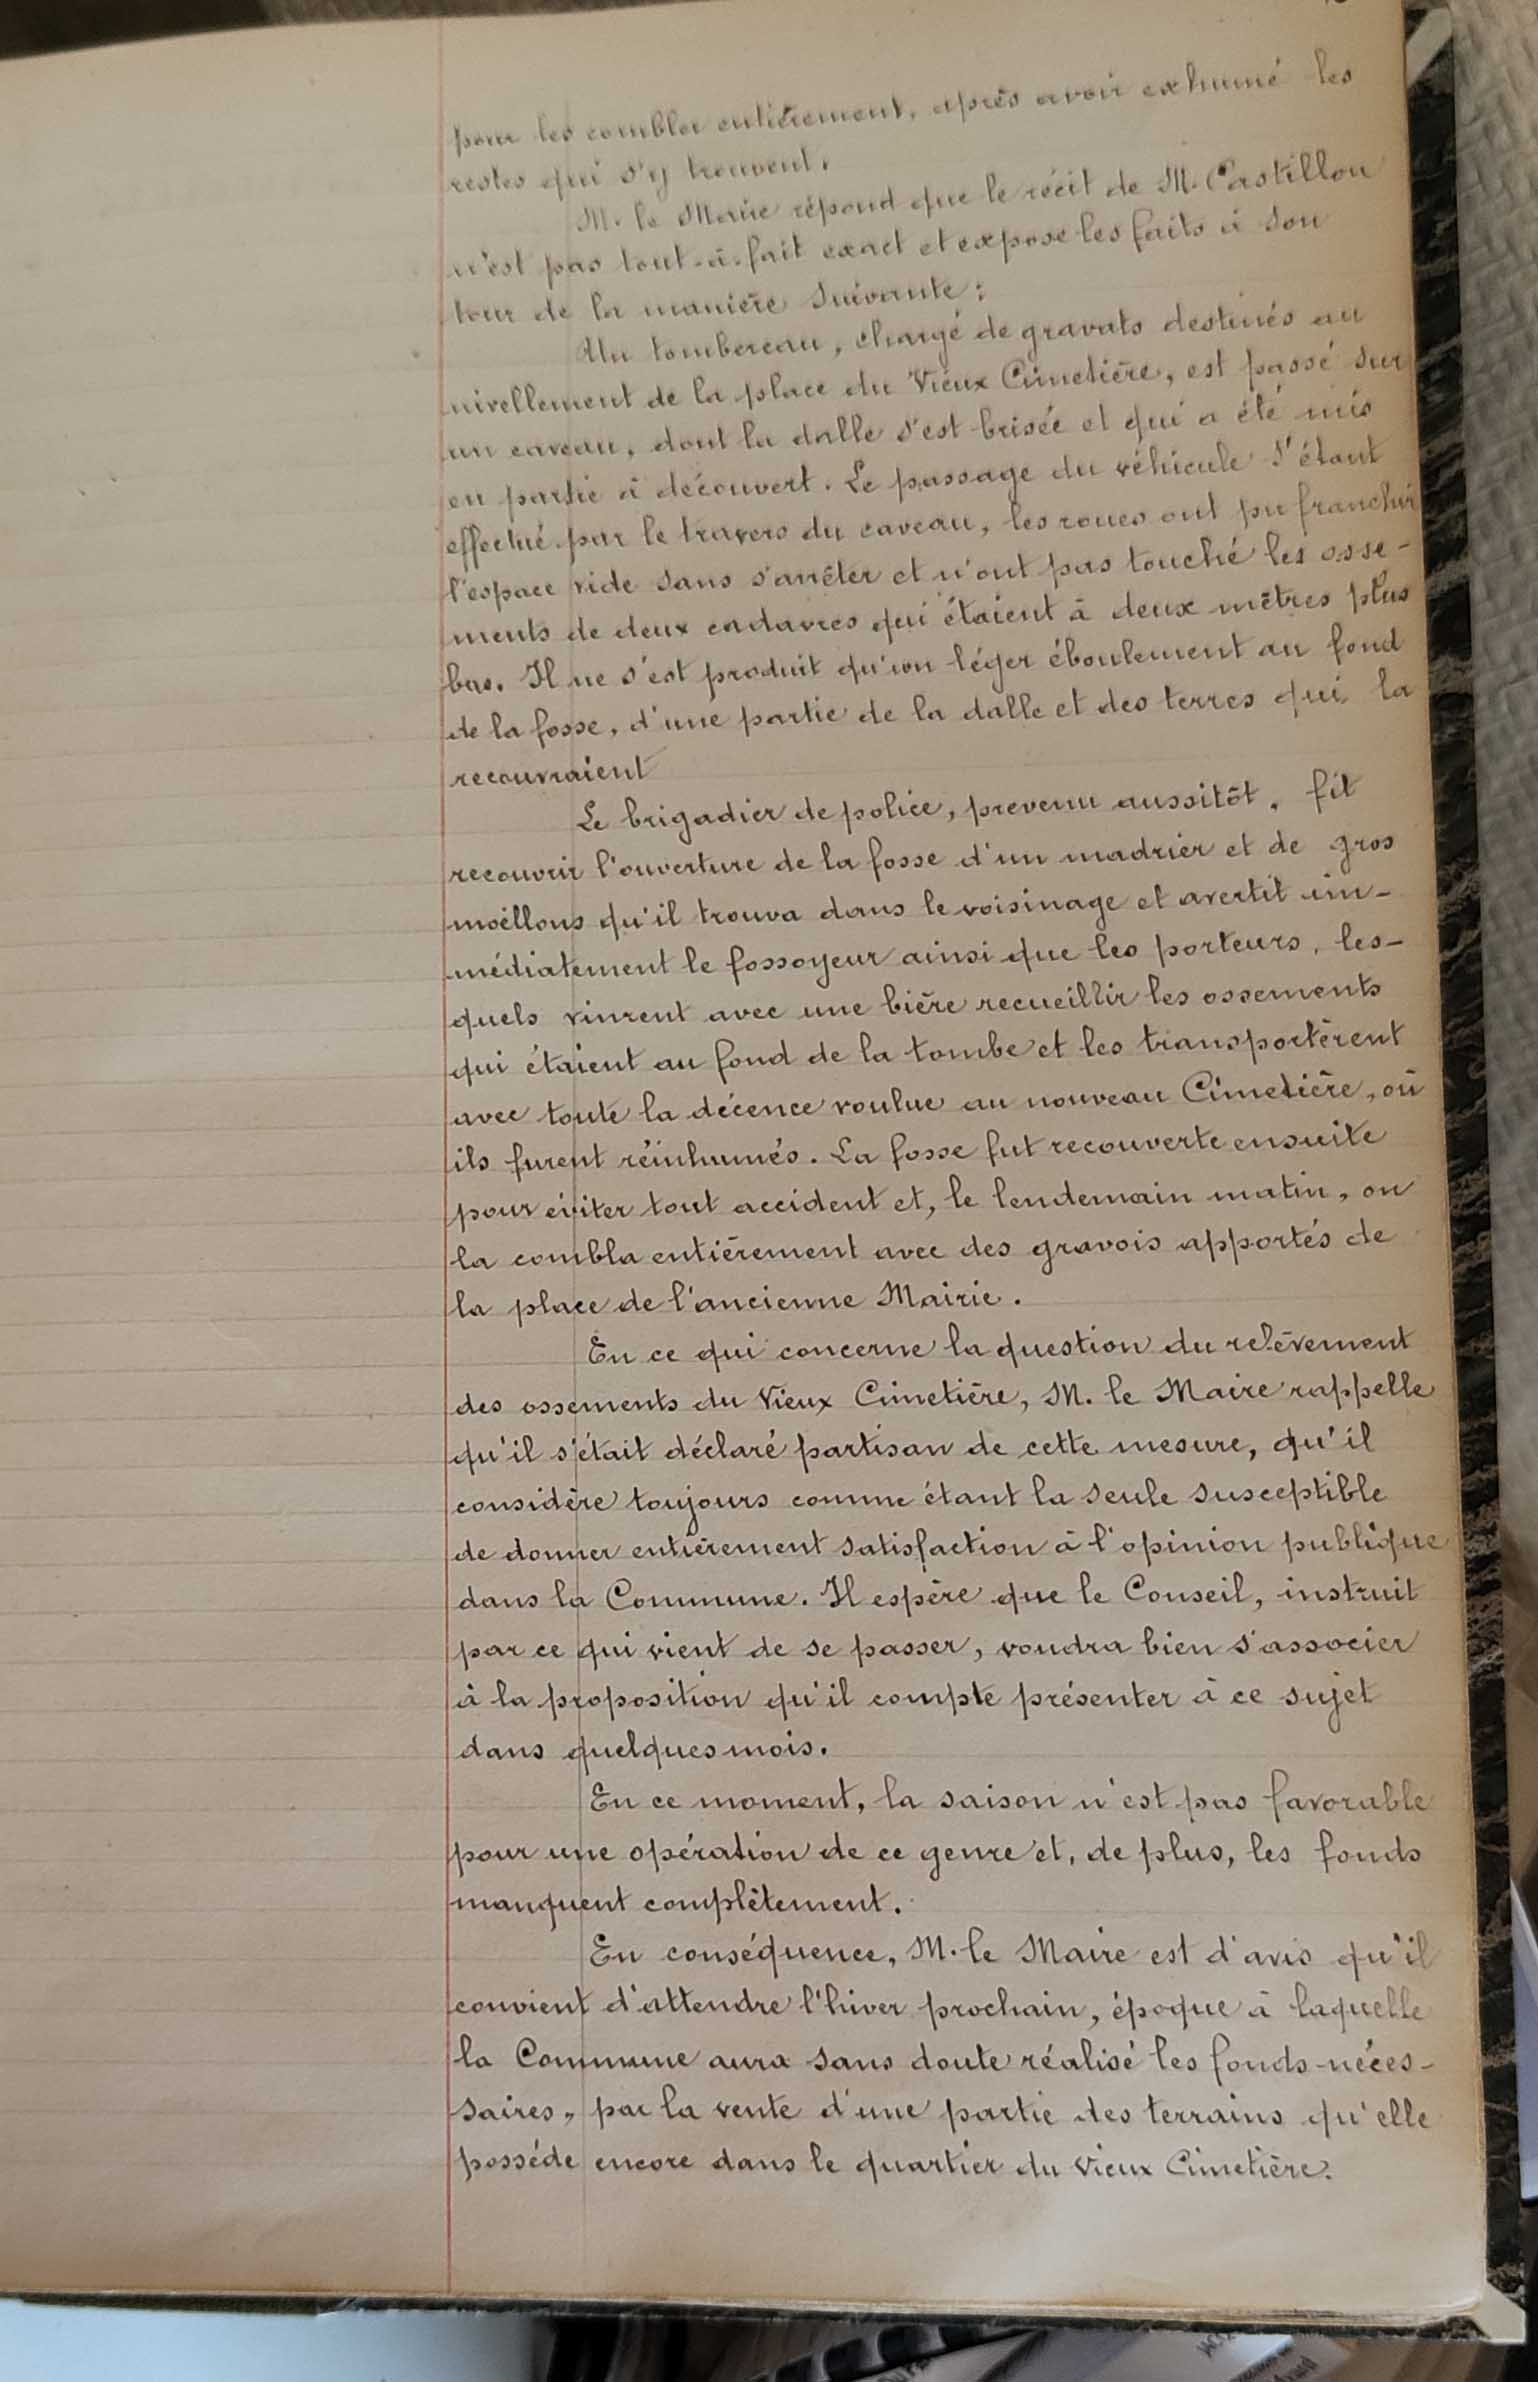 pour les combler entièrement, après avoir exhumé les
restes qui s'y trouvent.
M. le Maire répond que le récit de M. Castillon
n'est pas tout-à-fait exact et expose les faits à son
tour de la manière suivante :
Un tombereau, chargé de gravats destinés au
nivellement de la place du Vieux Cimetière, est passé sur
un caveau, dont la dalle s'est brisée et qui a été mis
en partie à découvert. Le passage du véhicule s'étant
effectué par le travers du caveau, les roues ont pu franchir
l'espace vide sans s'arrêter et n'ont pas touché les osse-
ments de deux cadavres qui étaient à deux mètres plus
bas. Il ne s'est produit qu'un léger éboulement au fond
de la fosse, d'une partie de la dalle et des terres qui la
recouvraient
Le brigadier de police, prevenu aussitôt, fit
recouvrir l'ouverture de la fosse d'un madrier et de gros
moëllons qu'il trouva dans le voisinage et avertit im-
médiatement le fossoyeur ainsi que les porteurs, les-
quels vinrent avec une bière recueillir les ossements
qui étaient au fond de la tombe et les transportèrent
avec toute la décence voulue au nouveau Cimetière, où
ils furent réinhumés. La fosse fut recouverte ensuite
pour éviter tout accident et, le lendemain matin, on
la combla entièrement avec des gravois apportés de
la place de l'ancienne Mairie.
En ce qui concerne la question du relèvement
des ossements du Vieux Cimetière, M. le Maire rappelle
qu'il s'était déclaré partisan de cette mesure, qu'il
considère toujours comme étant la seule susceptible
de donner entièrement satisfaction à l'opinion publique
dans la Commune. Il espère que le Conseil, instruit
par ce qui vient de se passer, voudra bien s'associer
à la proposition qu'il compte présenter à ce sujet
dans quelques mois.
En ce moment, la saison n'est pas favorable
pour une opération de ce genre et, de plus, les fonds
manquent complètement.
En conséquence, M. le Maire est d'avis qu'il
convient d'attendre l'hiver prochain, époque à laquelle
la Commune aura sans doute réalisé les fonds néces-
saires, par la vente d'une partie des terrains qu'elle
possède encore dans le quartier du Vieux Cimetière.